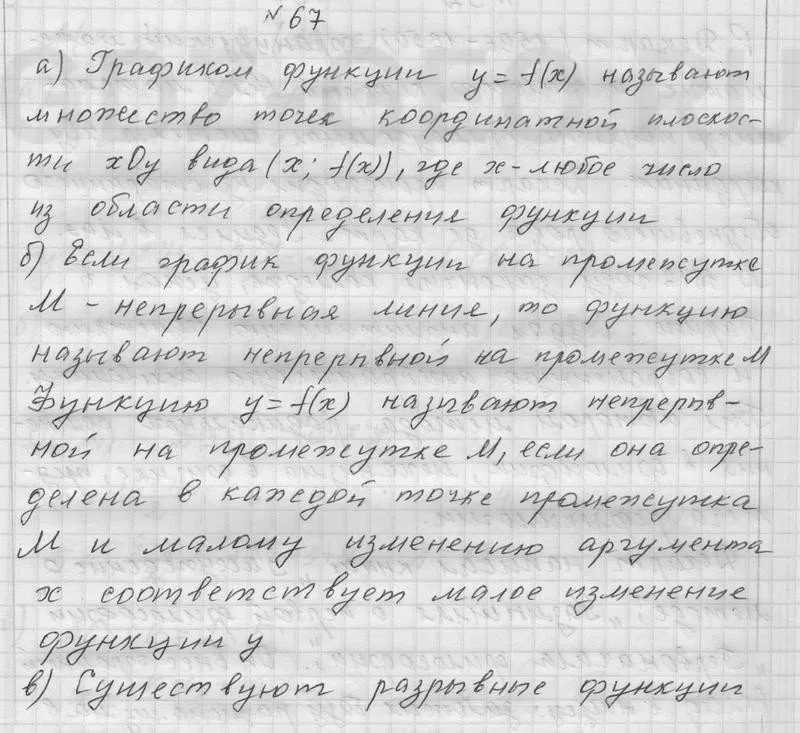 №67
а) Графиком функции y = f(x) называют
множество точек координатной плоскос-
ти xOy вида (x; f(x)), где x - любое число
из области определения функции
б) Если график функции на промежутке
М - непрерывная линия, то функцию
называют непрерывной на промежутке М
Функцию y = f(x) называют непрерыв-
ной на промежутке М, если она опре-
делена в каждой точке промежутка
М и малому изменению аргумента
x соответствует малое изменение
функции y
в) Существуют разрывные функции